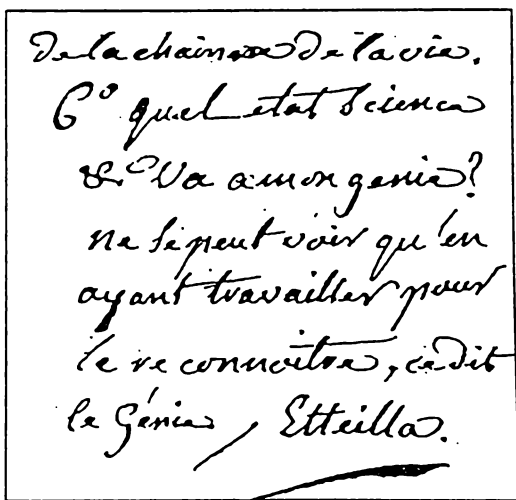 de la chaine de la vie.
6° quel etat Science
&c Va a mon genie?
ne se peut voir qu'en
ayant travailler pour
le reconnoître, ce dit
le Génie, Etteilla.